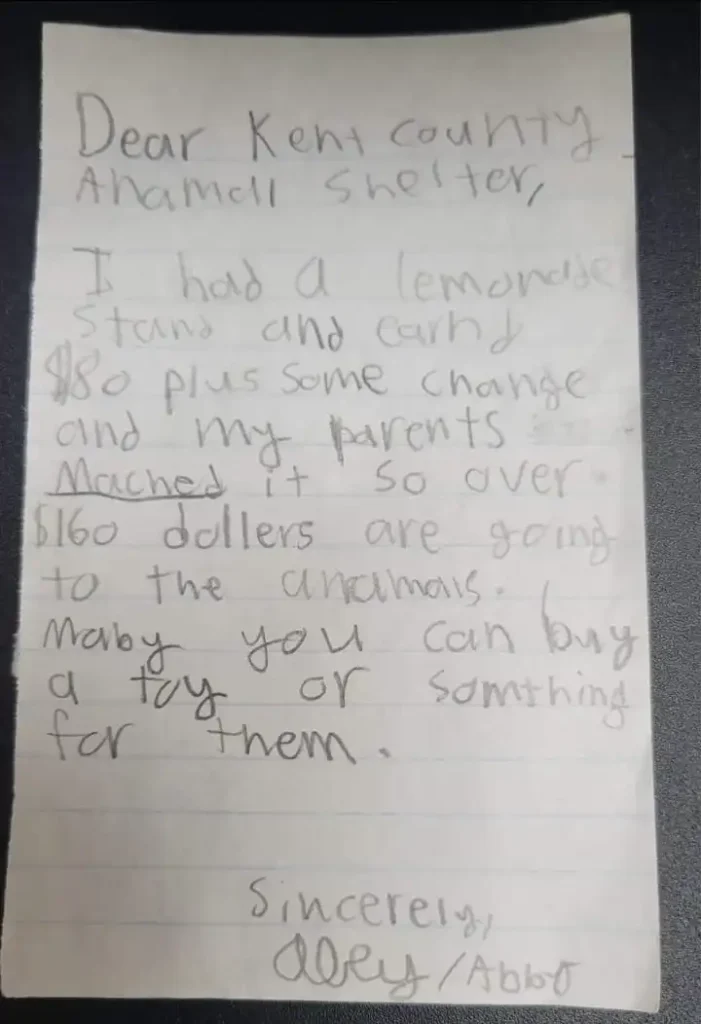 Dear Kent county
Anamall Shelter,
I had a lemonade
Stand and earnd
$80 plus some change
and my parents
Mached it so over
$160 dollers are going
to the anamals.
Maby you can buy
a toy or somthing
for them.
Sincerely,
Abey/Abbo